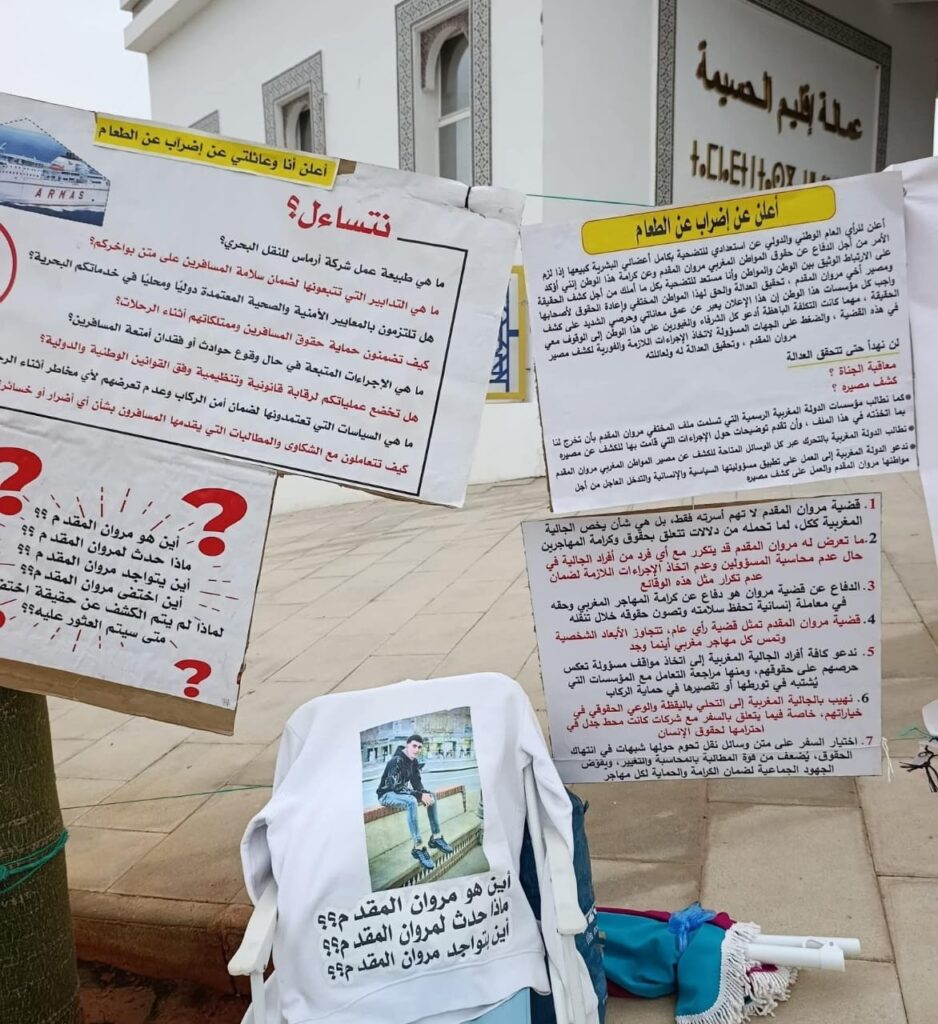 عمالة إقليم الحسيمة
ARMAS
أعلن أنا وعائلتي عن إضراب عن الطعام
نتساءل؟
ما هي طبيعة عمل شركة أرماس للنقل البحري؟
ما هي التدابير التي تتبعونها لضمان سلامة المسافرين على متن بواخركم؟
هل تلتزمون بالمعايير الأمنية والصحية المعتمدة دوليًا ومحليًا في خدماتكم البحرية؟
كيف تضمنون حماية حقوق المسافرين وممتلكاتهم أثناء الرحلات؟
ما هي الإجراءات المتبعة في حال وقوع حوادث أو فقدان أمتعة المسافرين؟
هل تخضع عملياتكم لرقابة قانونية وتنظيمية وفق القوانين الوطنية والدولية؟
ما هي السياسات التي تعتمدونها لضمان أمن الركاب وعدم تعرضهم لأي مخاطر أثناء
كيف تتعاملون مع الشكاوى والمطالبات التي يقدمها المسافرون بشأن أي أضرار أو
أعلن عن إضراب عن الطعام
أعلن للرأي العام الوطني والدولي عن استعدادي للتضحية بكامل أعضائي البشرية كبيعها إذا لزم
الأمر من أجل الدفاع عن حقوق المواطن المغربي مروان المقدم وعن كرامة هذا الوطن إنني أؤكد
على الارتباط الوثيق بين الوطن والمواطن وأنا مستعد للتضحية بكل ما أملك من أجل كشف الحقيقة
ومصير أخي مروان المقدم ، تحقيق العدالة والحق لهذا المواطن المختفي وإعادة الحقوق لأصحابها
واجب كل مؤسسات هذا الوطن إن هذا الإعلان يعبر عن عمق معاناتي وحرصي الشديد على كشف
الحقيقة ، مهما كانت التكلفة الباهظة أدعو كل الشرفاء والغيورين على هذا الوطن إلى الوقوف معي
في هذه القضية ، والضغط على الجهات المسؤولة لاتخاذ الإجراءات اللازمة والفورية لكشف مصير
مروان المقدم ، وتحقيق العدالة له ولعائلته
لن نهدأ حتى تتحقق العدالة
معاقبة الجناة ؟
كشف مصيره ؟
كما نطالب مؤسسات الدولة المغربية الرسمية التي تسلمت ملف المختفي مروان المقدم بأن تخرج لنا
بما اتخذته في هذا الملف ، وأن تقدم توضيحات حول الإجراءات التي قامت بها للكشف عن مصيره
نطالب الدولة المغربية بالتحرك عبر كل الوسائل المتاحة للكشف عن مصير المواطن المغربي مروان المقدم
ندعو الدولة المغربية إلى العمل على تطبيق مسؤوليتها السياسية والإنسانية والتدخل العاجل من أجل
مواطنها مروان المقدم والعمل على كشف مصيره
أين هو مروان المقدم ؟؟
ماذا حدث لمروان المقدم ؟؟
أين يتواجد مروان المقدم ؟؟
أين اختفى مروان المقدم ؟؟
لماذا لم يتم الكشف عن حقيقة
متى سيتم العثور عليه؟؟
1. قضية مروان المقدم لا تهم أسرته فقط، بل هي شأن يخص الجالية
المغربية ككل، لما تحمله من دلالات تتعلق بحقوق وكرامة المهاجرين
2. ما تعرض له مروان المقدم قد يتكرر مع أي فرد من أفراد الجالية في
حال عدم محاسبة المسؤولين وعدم اتخاذ الإجراءات اللازمة لضمان
عدم تكرار مثل هذه الوقائع
3. الدفاع عن قضية مروان هو دفاع عن كرامة المهاجر المغربي وحقه
في معاملة إنسانية تحفظ سلامته وتصون حقوقه خلال تنقله
4. قضية مروان المقدم تمثل قضية رأي عام، تتجاوز الأبعاد الشخصية
وتمس كل مهاجر مغربي أينما وجد
5. ندعو كافة أفراد الجالية المغربية إلى اتخاذ مواقف مسؤولة تعكس
حرصهم على حقوقهم، ومنها مراجعة التعامل مع المؤسسات التي
يُشتبه في تورطها أو تقصيرها في حماية الركاب
6. نهيب بالجالية المغربية إلى التحلي باليقظة والوعي الحقوقي في
خياراتهم، خاصة فيما يتعلق بالسفر مع شركات كانت محط جدل في
احترامها لحقوق الإنسان
7. اختيار السفر على متن وسائل نقل تحوم حولها شبهات في انتهاك
الحقوق، يُضعف من قوة المطالبة بالمحاسبة والتغيير، ويقوّض
الجهود الجماعية لضمان الكرامة والحماية لكل مهاجر
أين هو مروان المقدم؟؟
ماذا حدث لمروان المقدم؟؟
أين يتواجد مروان المقدم؟؟